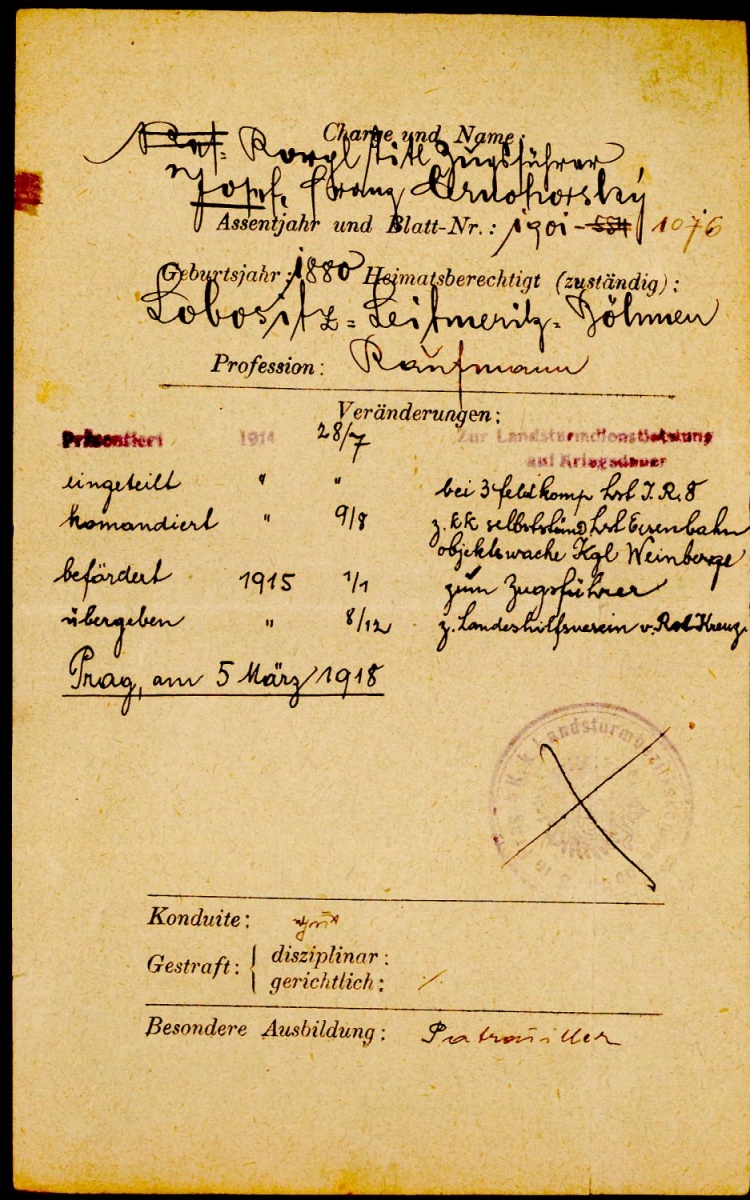 Charge und Name:
Korpl titl Zugsführer
Josef, Franz Černohorský
Assentjahr und Blatt-Nr.: 1901 - 1076
Geburtsjahr: 1880 Heimatsberechtigt (zuständig):
Lobositz = Leitmeritz = Böhmen
Profession: Kaufmann
Veränderungen:
Präsentiert 1914 28/7 Zur Landsturmdienstleistung
auf Kriegsdauer
eingeteilt " " bei 3 feldkomp lrst I. R. 8
komandiert " 9/8 z. kk selbstständ lrst Eisenbahn
objektswache Kgl Weinberge
befördert 1915 1/1 zum Zugsführer
übergeben " 8/12 z. Landeshilfsverein v. Rot Kreuz
Prag, am 5 März 1918
K. k. Landsturmbezirks
Konduite:
Gestraft: { disziplinar:
gerichtlich: ·/.
Besondere Ausbildung: Patrouiller